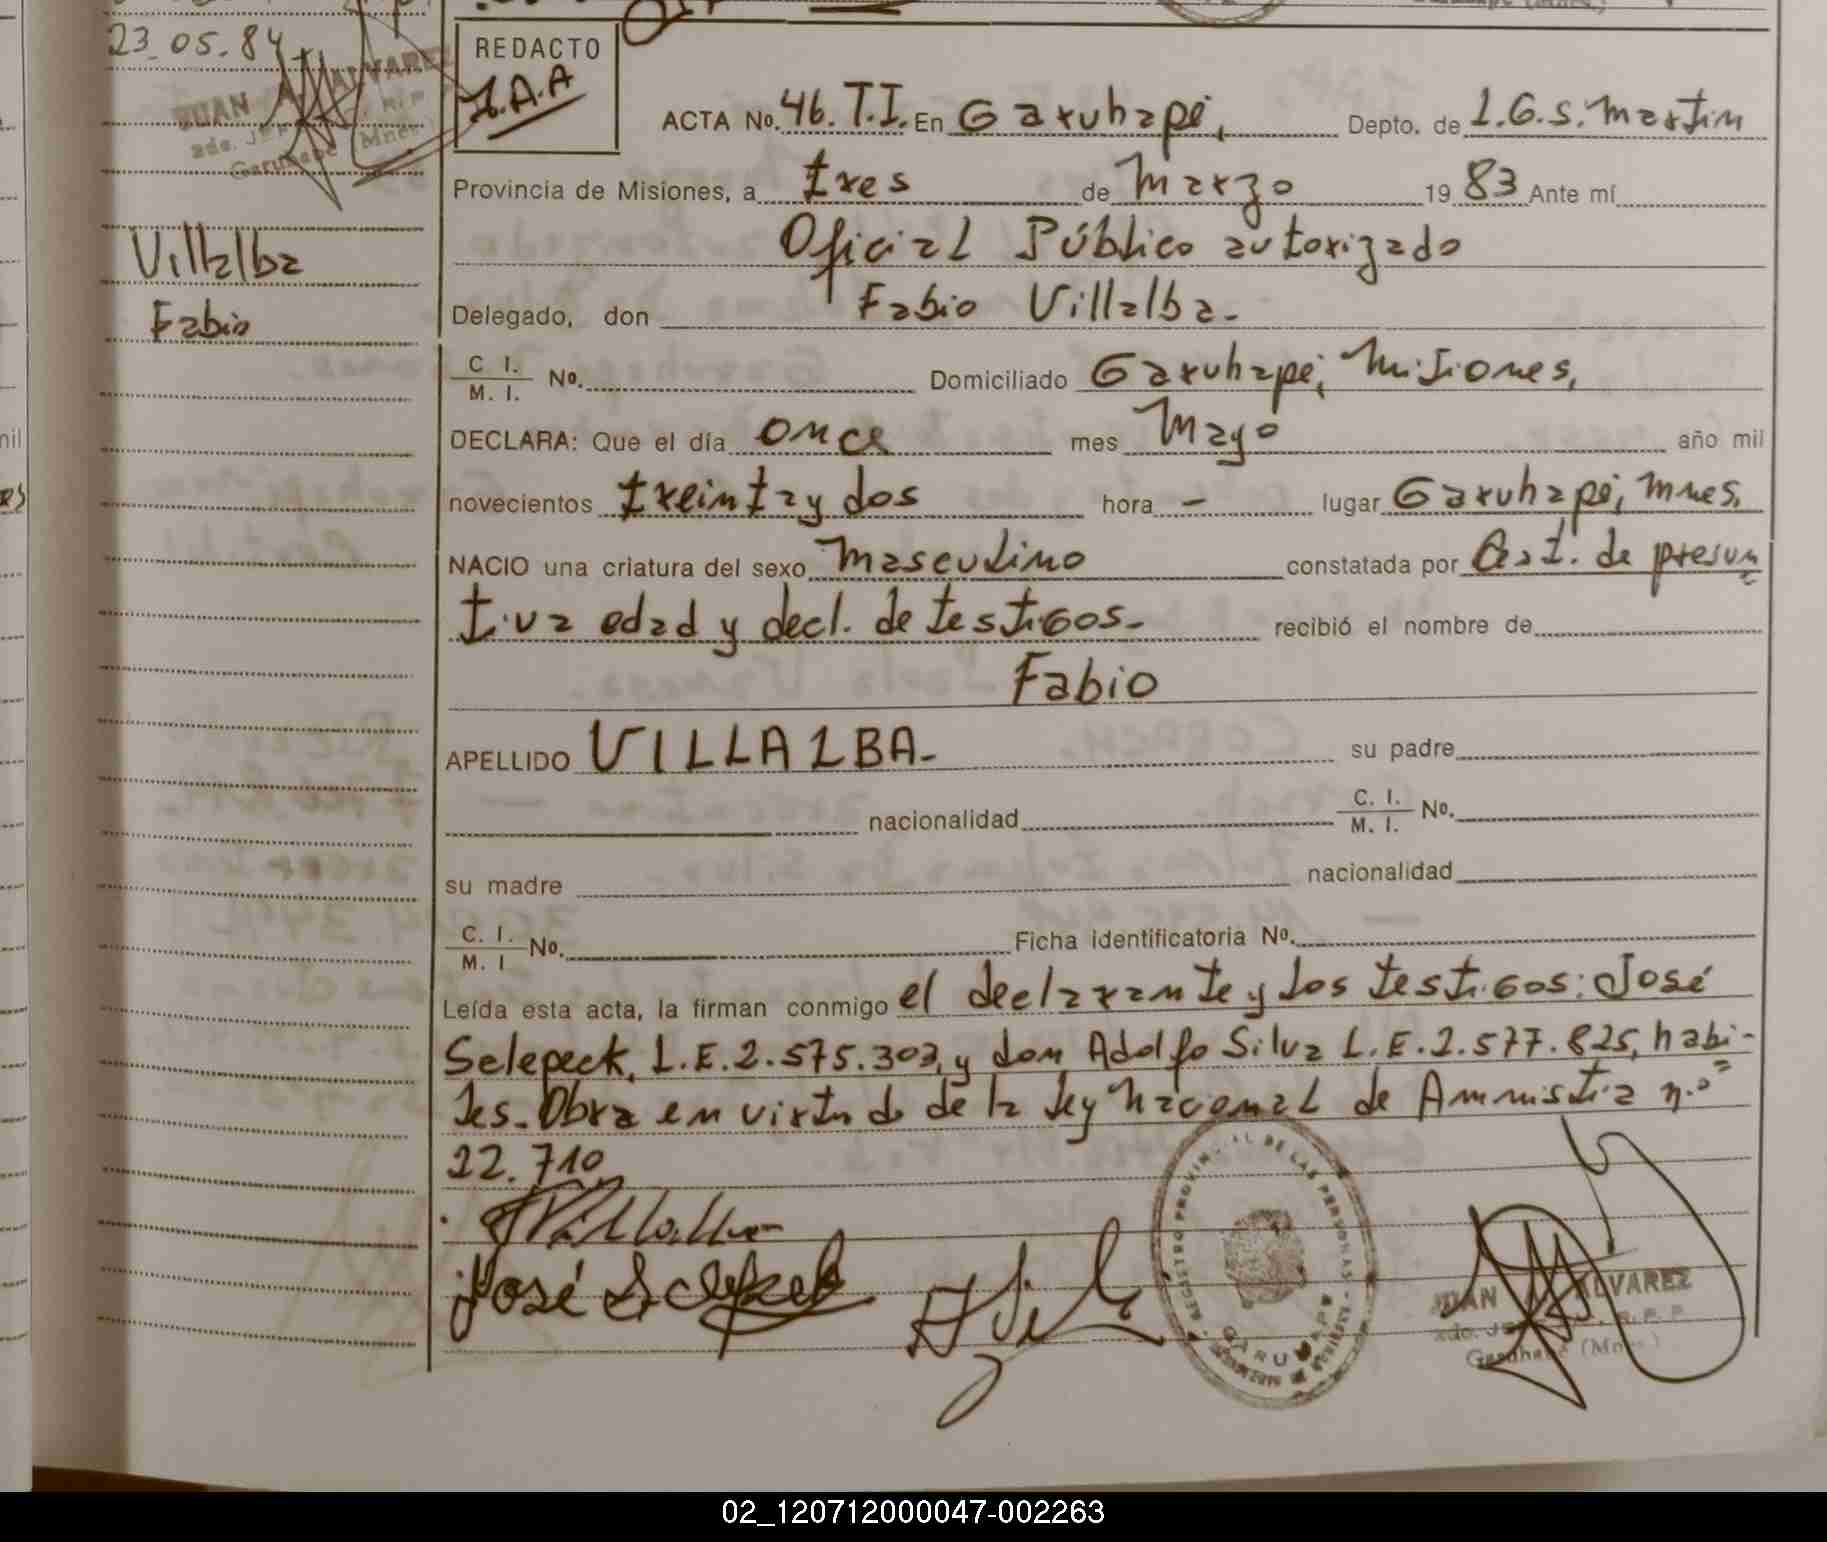 23.05.84
JUAN A. ALVAREZ
Garuhape (Mnes.)
REDACTO
J.A.A
ACTA No. 46. T.I. En Garuhapé, Depto. de L.G.S. Martin
Provincia de Misiones, a tres de Marzo 19 83 Ante mí
Oficial Público autorizado
Villalba
Fabio
Delegado, don Fabio Villalba.-
C. I.
M. I. No. Domiciliado Garuhapé, Misiones,
DECLARA: Que el día once mes Mayo año mil
novecientos treinta y dos hora - lugar Garuhapé, Mnes,
NACIO una criatura del sexo Masculino constatada por Cert. de presun
tiva edad y decl. de testigos.- recibió el nombre de
Fabio
APELLIDO VILLALBA- su padre
nacionalidad C. I.
M. I. No.
su madre nacionalidad
C. I.
M. I No. Ficha identificatoria No.
Leída esta acta, la firman conmigo el declarante y los testigos: José
Selepeck, L.E.2.575.303, y don Adolfo Silva L.E.2.577.825, habi-
les. Obra en virtud de la ley Nacional de Amnistia n.º
22.710
Villalba
José Selepeck
A Silva
REGISTRO PROVINCIAL DE LAS PERSONAS
GARUHAPE
JUAN A. ALVAREZ
Garuhape (Mnes.)
02_120712000047-002263